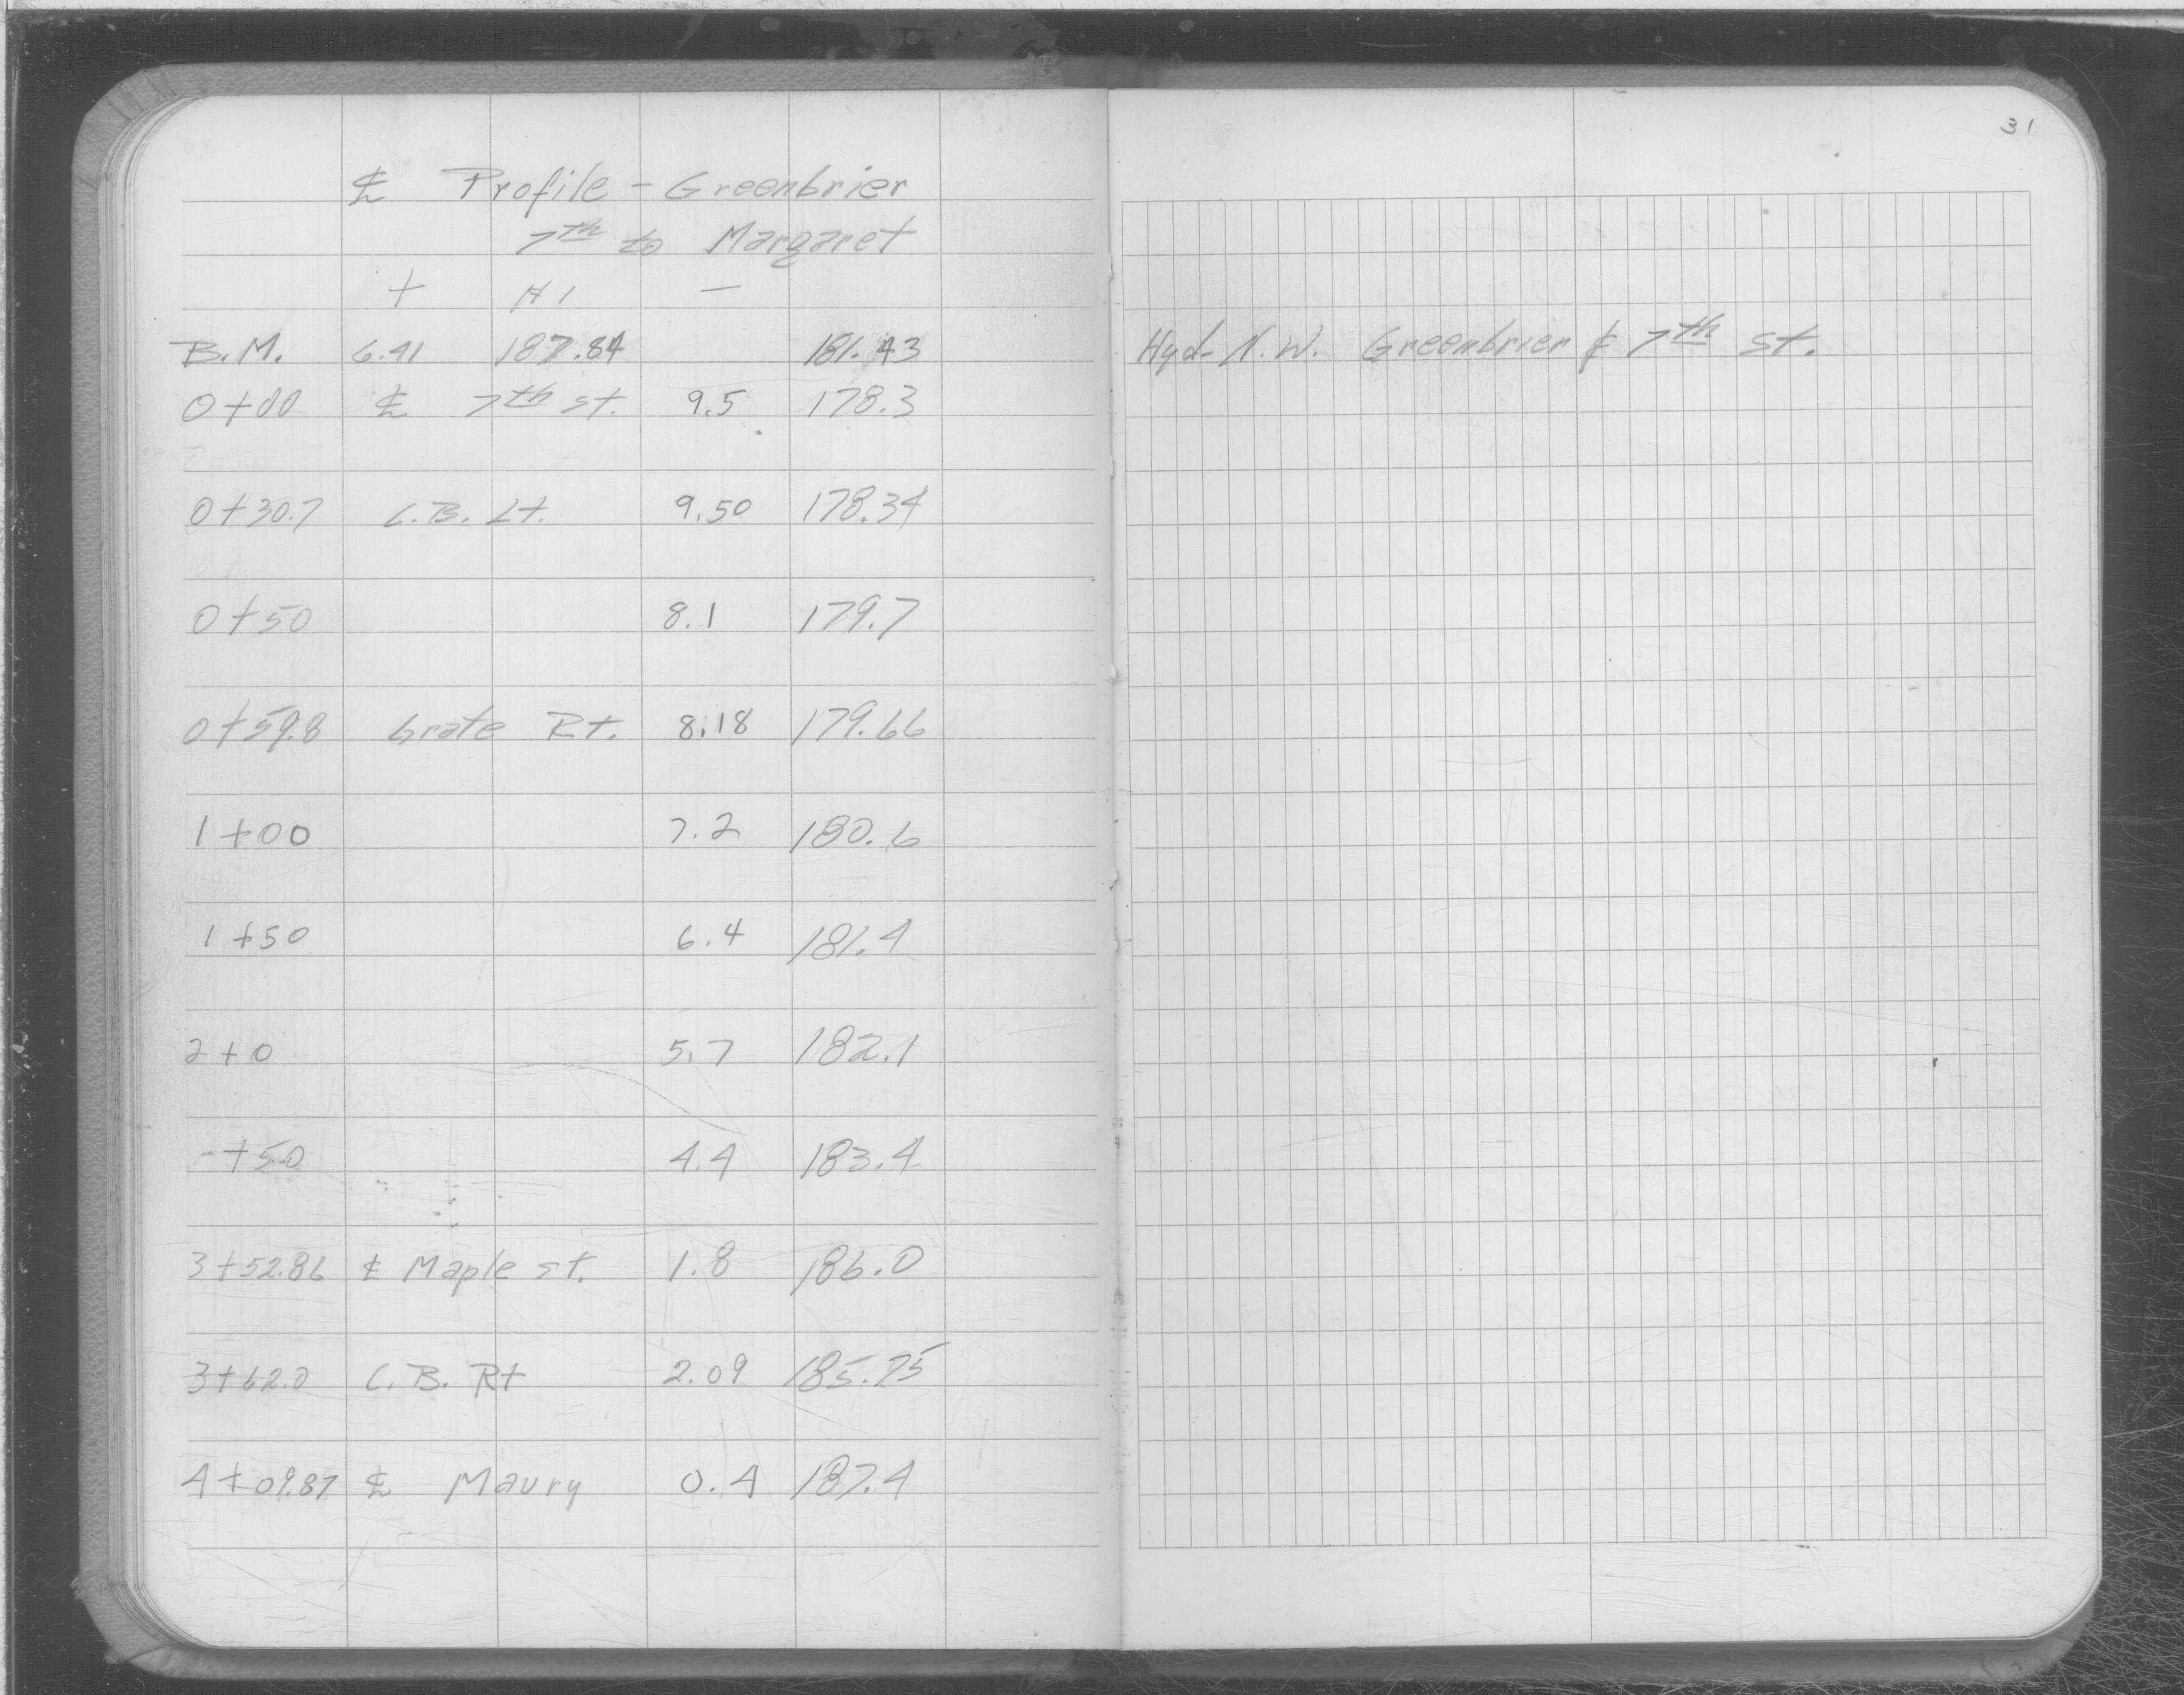 ℄ Profile - Greenbrier
7th to Margaret
+ HI -
B.M. 6.41 187.84 181.43
0+00 ℄ 7th st. 9.5 178.3
0+30.7 C.B. Lt. 9.50 178.34
0+50 8.1 179.7
0+59.8 Grate Rt. 8.18 179.66
1+00 7.2 180.6
1+50 6.4 181.4
2+0 5.7 182.1
+50 4.4 183.4
3+52.86 ℄ Maple st. 1.8 186.0
3+62.0 C.B. Rt 2.09 185.75
4+09.87 ℄ Maury 0.4 187.4
31
Hyd. N.W. Greenbrier & 7th st.